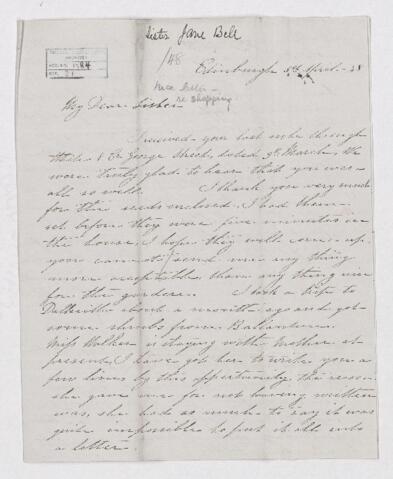 Sister Jane Bell
/48
Edinburgh 8th April - 48
Nice letter -
re shopping
My Dear Sister
I received your last note through
George Street, dated 9th March, We
were truly glad to hear that you were
all so well. I thank you very much
for the seeds enclosed. I had them
set before they were five minutes in
the house, I hope they will come up.
you cannot send me any thing
more acceptable than any thing new
for the garden. I took a trip to
Dalkeith about a month ago and got
some shrubs from Ballantine.
Miss Walker is staying with Mother at
present, I have got her to write you a
few lines by this opportunity, the reason
she gave me for not having written
was, she had so much to say it was
quite impossible to put it all into
a letter.